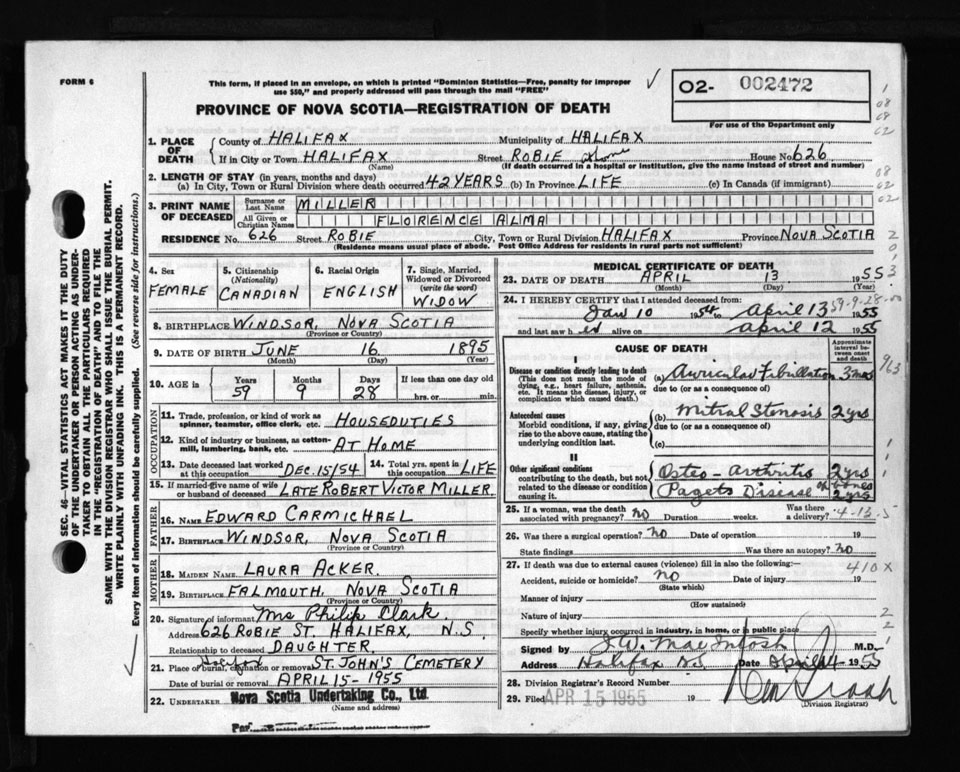 FORM 6
This form, if placed in an envelope, on which is printed "Dominion Statistics—Free, penalty for improper
use $50," and properly addressed will pass through the mail "FREE"
PROVINCE OF NOVA SCOTIA—REGISTRATION OF DEATH
O2- 002472
For use of the Department only
1. PLACE OF DEATH
County of HALIFAX Municipality of HALIFAX
If in City or Town HALIFAX Street ROBIE Home House No. 626
(Name) (If death occurred in a hospital or institution, give the name instead of street and number)
2. LENGTH OF STAY (in years, months and days)
(a) In City, Town or Rural Division where death occurred 42 YEARS (b) In Province LIFE (c) In Canada (if immigrant)
3. PRINT NAME OF DECEASED
Surname or Last Name MILLER
All Given or Christian Names FLORENCE ALMA
RESIDENCE No. 626 Street ROBIE City, Town or Rural Division HALIFAX Province NOVA SCOTIA
(Residence means usual place of abode. Post Office Address for residents in rural parts not sufficient)
4. Sex
FEMALE
5. Citizenship (Nationality)
CANADIAN
6. Racial Origin
ENGLISH
7. Single, Married, Widowed or Divorced (write the word)
WIDOW
8. BIRTHPLACE WINDSOR, NOVA SCOTIA
(Province or Country)
9. DATE OF BIRTH JUNE 16 1895
(Month) (Day) (Year)
10. AGE in
Years Months Days If less than one day old
59 9 28 hrs. or min.
OCCUPATION
11. Trade, profession or kind of work as
spinner, teamster, office clerk, etc. HOUSEDUTIES
12. Kind of industry or business, as cotton-
mill, lumbering, bank, etc. AT HOME
13. Date deceased last worked at this occupation DEC. 15/54 14. Total yrs. spent in this occupation LIFE
15. If married give name of wife
or husband of deceased LATE ROBERT VICTOR MILLER.
FATHER
16. NAME EDWARD CARMICHAEL
17. BIRTHPLACE WINDSOR, NOVA SCOTIA
(Province or Country)
MOTHER
18. MAIDEN NAME LAURA ACKER.
19. BIRTHPLACE FALMOUTH, NOVA SCOTIA
(Province or Country)
20. Signature of informant Mrs Philip Clark.
Address 626 ROBIE ST. HALIFAX, N.S.
Relationship to deceased DAUGHTER.
21. Place of burial, cremation or removal Halifax ST. JOHN'S CEMETERY
Date of burial or removal APRIL 15 - 1955
22. UNDERTAKER Nova Scotia Undertaking Co., Ltd.
(Name and address)
Per
MEDICAL CERTIFICATE OF DEATH
23. DATE OF DEATH APRIL 13 1955
(Month) (Day) (Year)
24. I HEREBY CERTIFY that I attended deceased from:
Jan 10 1954 to April 13 1955
and last saw her alive on April 12 1955
59-9-28
CAUSE OF DEATH
Approximate interval between onset and death
I
Disease or condition directly leading to death
(This does not mean the mode of dying, e.g., heart failure, asthenia, etc. It means the disease, injury, or complication which caused death.)
(a) Auricular Fibrillation 3 mos
due to (or as a consequence of)
Antecedent causes
Morbid conditions, if any, giving rise to the above cause, stating the underlying condition last.
(b) Mitral Stenosis 2 yrs
due to (or as a consequence of)
(c)
II
Other significant conditions
contributing to the death, but not related to the disease or condition causing it.
Osteo-Arthritis 2 yrs
Pagets Disease of bones 2 yrs
25. If a woman, was the death associated with pregnancy? no Duration weeks. Was there a delivery?
26. Was there a surgical operation? no Date of operation 19
State findings Was there an autopsy? no
27. If death was due to external causes (violence) fill in also the following:
410X
Accident, suicide or homicide? no Date of injury 19
(State which)
Manner of injury
(How sustained)
Nature of injury
Specify whether injury occurred in industry, in home, or in public place
Signed by J.W. MacIntosh M.D.
Address Halifax N.S. Date April 14 1955
28. Division Registrar's Record Number
29. Filed APR 15 1955 19
(Division Registrar)
SEC. 46—VITAL STATISTICS ACT MAKES IT THE DUTY
OF THE UNDERTAKER OR PERSON ACTING AS UNDER-
TAKER TO OBTAIN ALL THE PARTICULARS REQUIRED
IN THE "REGISTRATION OF DEATH" AND TO FILE THE
SAME WITH THE DIVISION REGISTRAR WHO SHALL ISSUE THE BURIAL PERMIT.
WRITE PLAINLY WITH UNFADING INK. THIS IS A PERMANENT RECORD.
Every item of information should be carefully supplied. (See reverse side for instructions.)